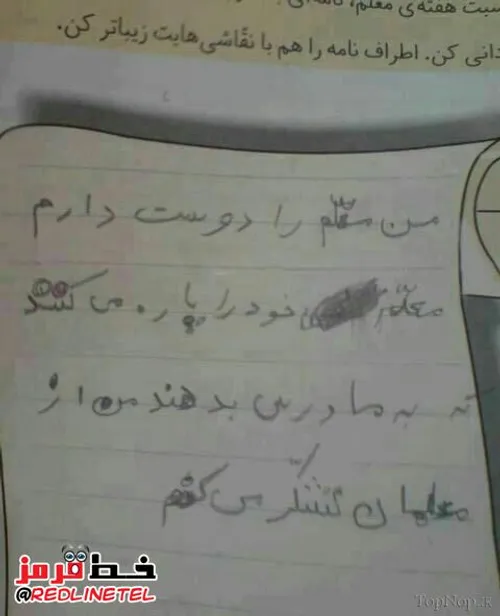 سبت هفته‌ی معلم، نامه‌ای
دانی کن. اطراف نامه را هم با نقّاشی‌هایت زیباتر کن.
من معلّم را دوست دارم
معلّم خود را پاره می کنند
که به ما درس بدهند من از
معلمان تشکّر می کنم
خط قرمز
@REDLINETEL
TopNop.ir